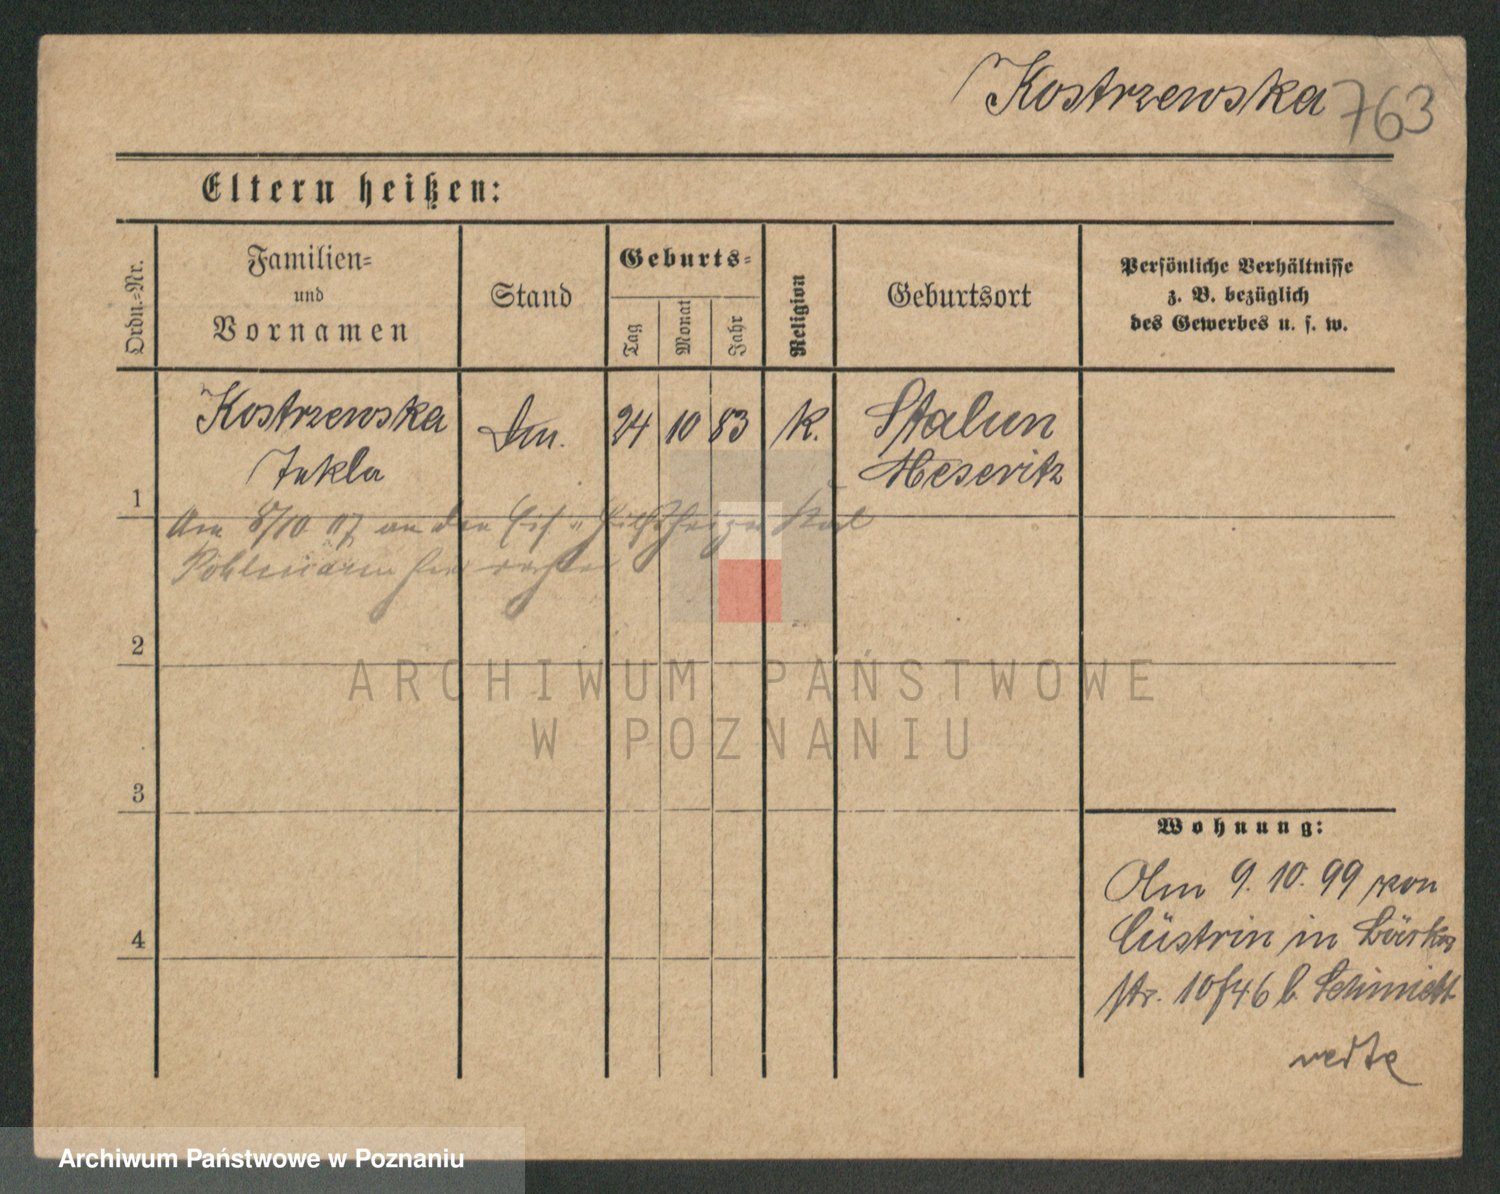 Kostrzewska 763
Eltern heißen:
Ordn.-Nr.
Familien-
und
Vornamen
Stand
Geburts-
Tag
Monat
Jahr
Religion
Geburtsort
Persönliche Verhältnisse
z. B. bezüglich
des Gewerbes u. s. w.
Kostrzewska
Tekla
24 10 83 k.
Stalun
Meseritz
1
Am 8/10 07 an den
2
3
4
Wohnung:
Am 9. 10. 99 von
Cüstrin in
str. 10/46 b. Schmidt
ARCHIWUM PAŃSTWOWE
W POZNANIU
Archiwum Państwowe w Poznaniu